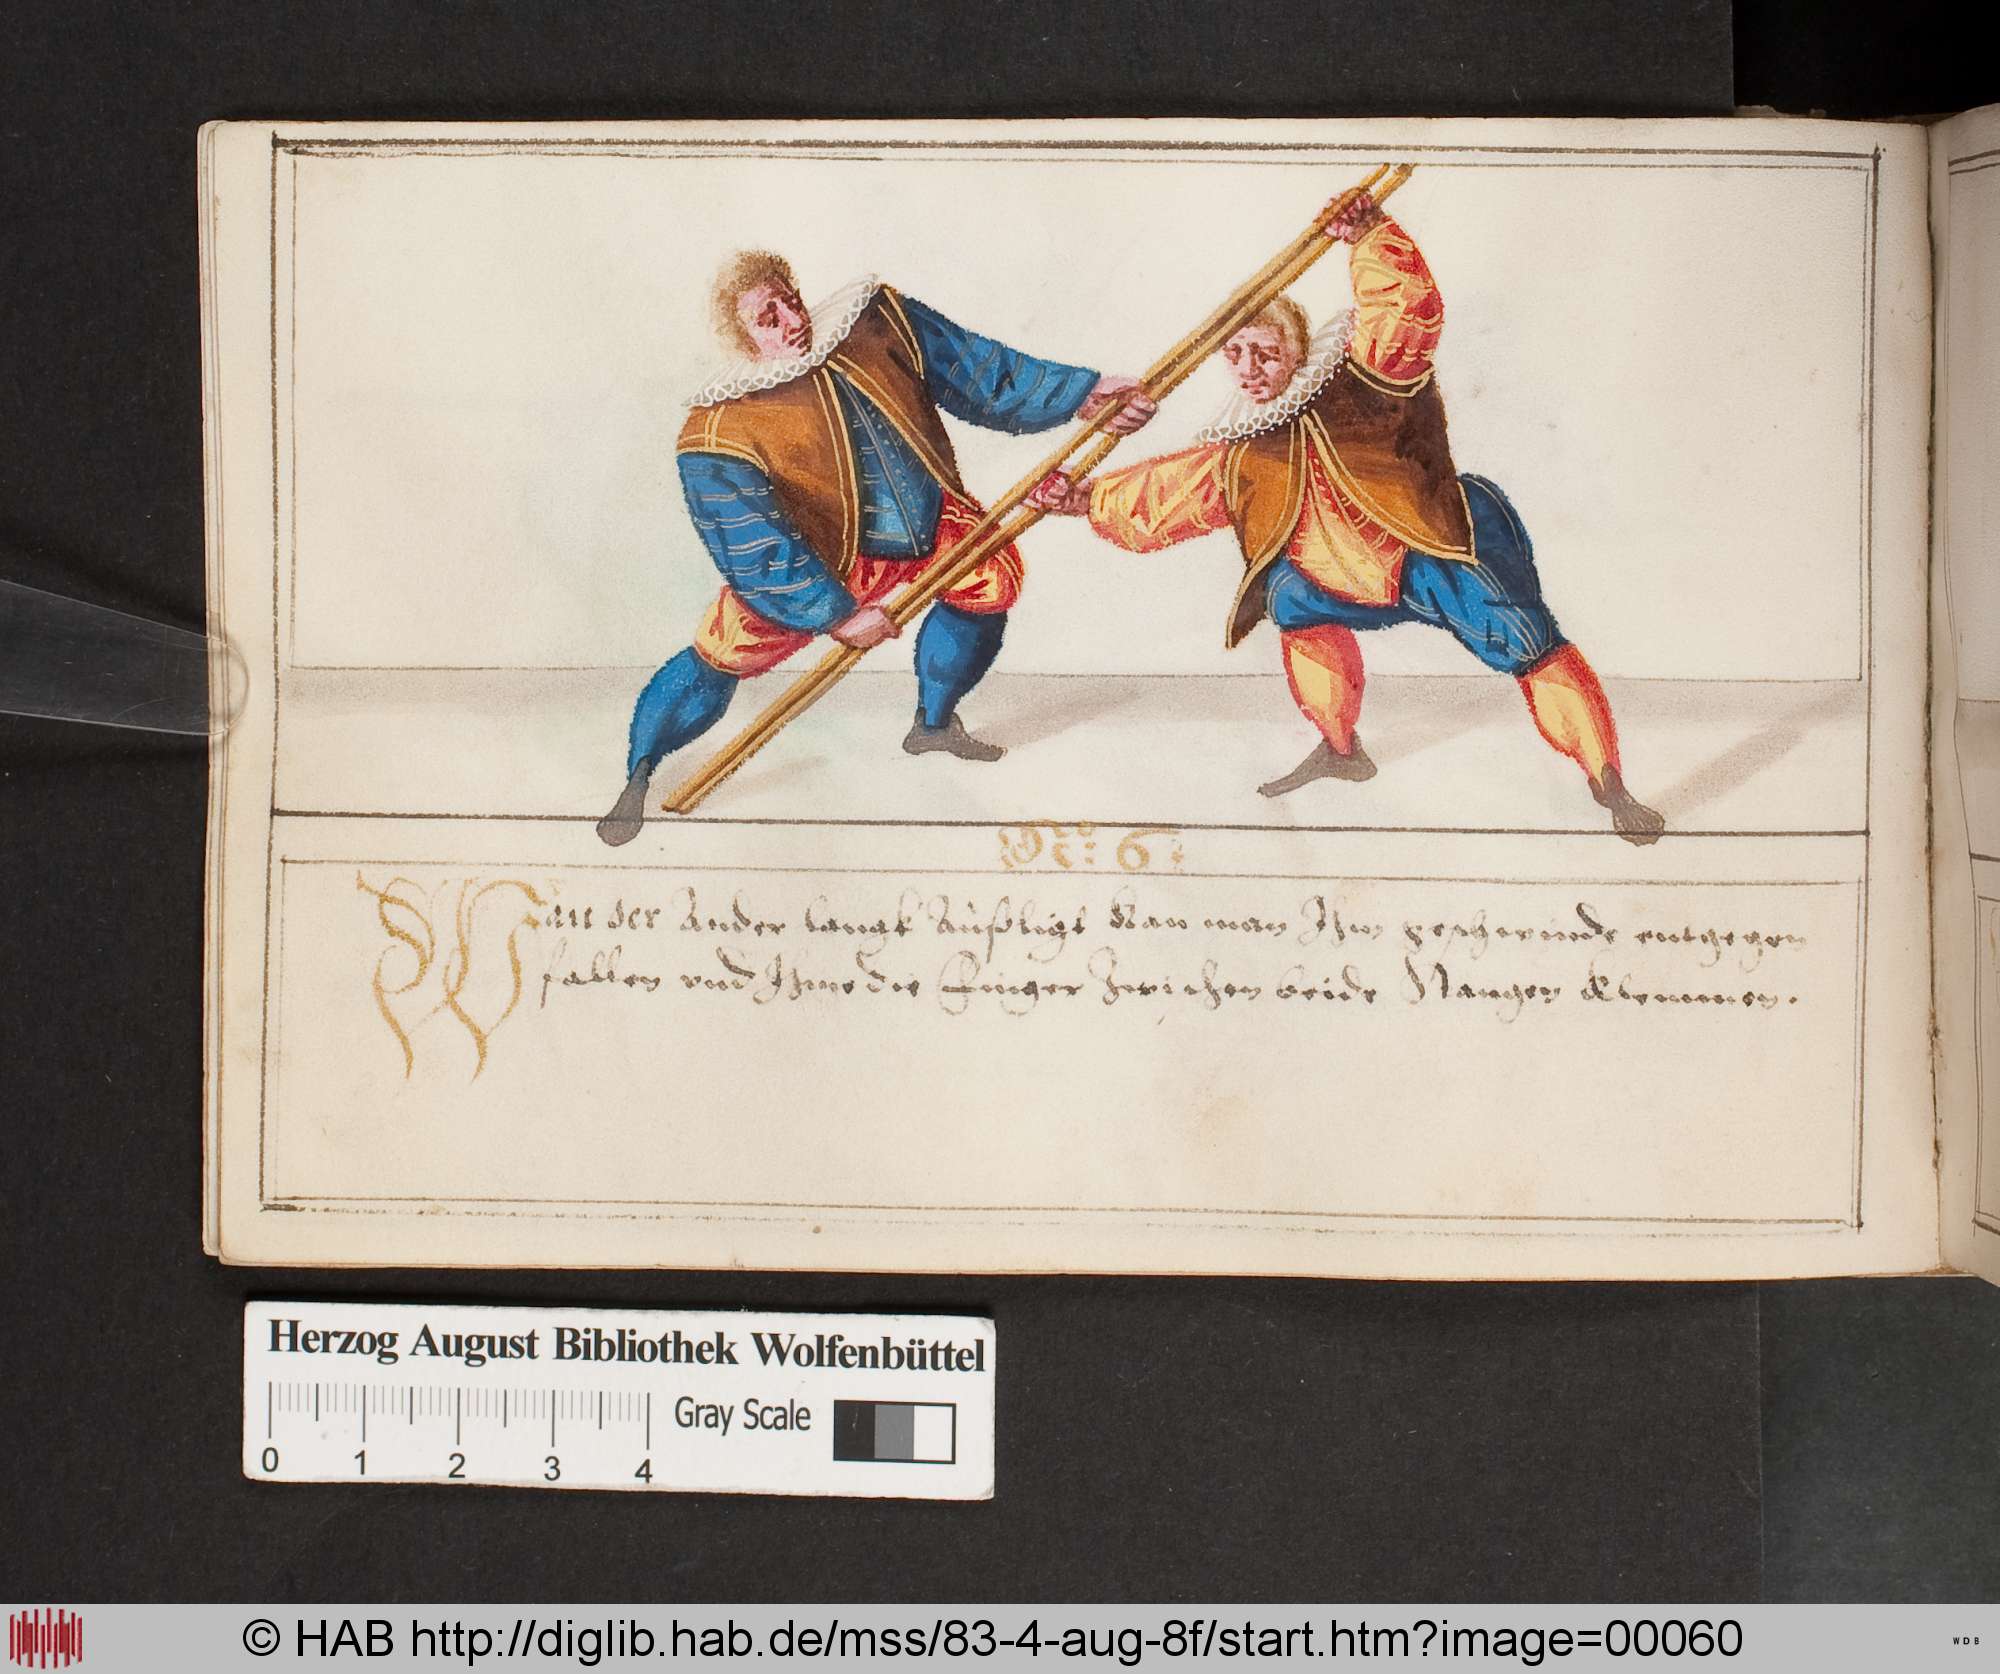 Wan der Ander langk Außligt Kan man Ihm geschwinde entgegen
fallen vnd Ihme die Finger Zwischen beide Stangen Klemmen.
Herzog August Bibliothek Wolfenbüttel
0 1 2 3 4 Gray Scale
© HAB http://diglib.hab.de/mss/83-4-aug-8f/start.htm?image=00060 WDB